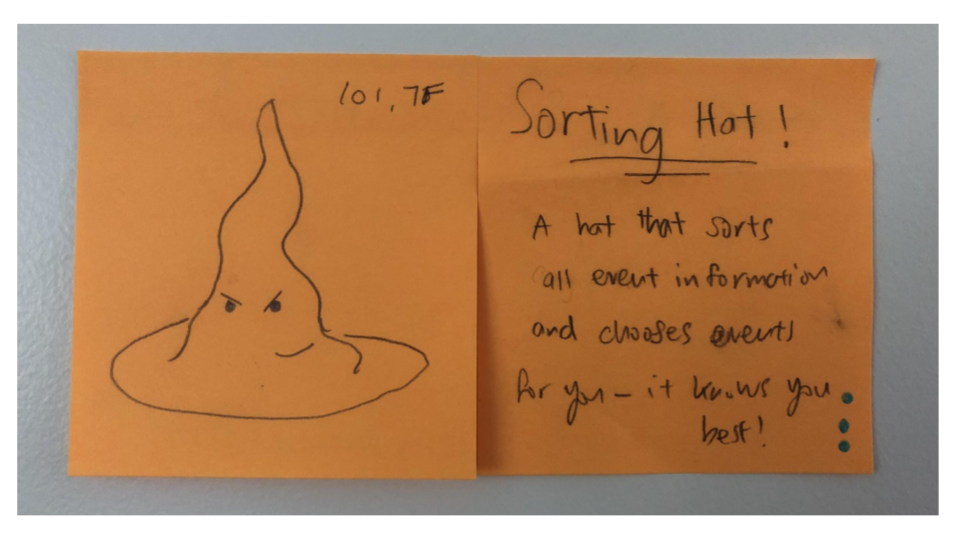 101, 7F
Sorting Hat!
A hat that sorts
all event information
and chooses events
for you - it knows you
best!